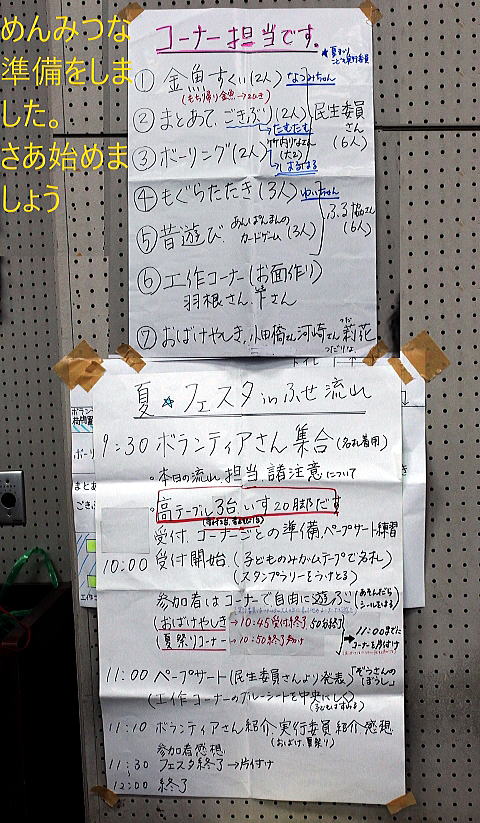 めんみつな
準備をしま
した。
さあ始めま
しょう
コーナー担当です。
① 金魚すくい(2人) なつみちゃん
(もち帰り金魚→2ひき)
② まとあて、ごきぶり(2人) 民生委員
さん
(6人)
③ ボーリング(2人)
はるはる
④ もぐらたたき(3人) ゆいちゃん
⑤ 昔遊び あんぱんまんの
カードゲーム (3人)
ふる協さん
(6人)
⑥ 工作コーナー(お面作り)
羽根さん、下さん
⑦ おばけやしき、小田僑さん河崎さん莉花
夏☆フェスタinふせ流山
9:30 ボランティアさん集合(名札着用)
・本日の流れ、担当、諸注意について
・高テーブル3台、いす20脚だす
受付、コーナーごとの準備、ペープサート練習
10:00 受付開始(子どものみガムテープで名札)
(スタンプラリーをうけとる)
参加者はコーナーで自由に遊ぶ(あそんだら
シールをはる)
(おばけやしき→10:45受付終了50分終了)
(夏祭りコーナー→10:50終了
→11:00までに
コーナー片付け
11:00 ペープサート(民生委員さんより発表)「ぞうさんの
ぼうし」
(工作コーナーのブルーシートを中央にしく)
(子どもすわる)
11:10 ボランティアさん紹介、実行委員紹介、感想
(おばけ、夏祭り)
参加者感想
11:30 フェスタ終了→片付け
12:00 終了